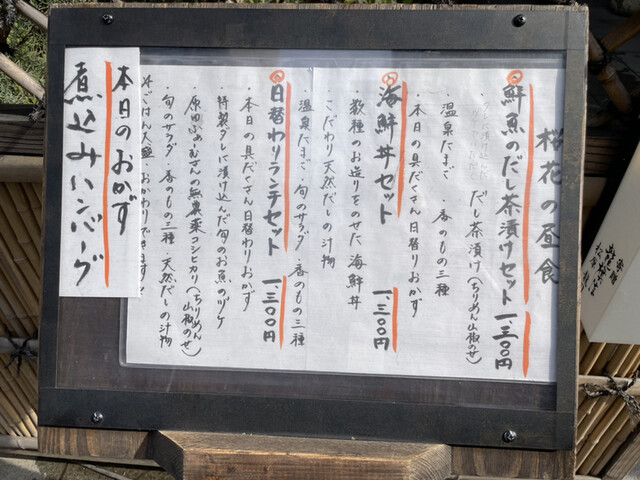 桜花の昼食
鮮魚のだし茶漬けセット 一、三〇〇円
だし茶漬け(ちりめん山椒のせ)
・温泉たまご ・香のもの三種
・本日の具だくさん日替りおかず
海鮮丼セット 一、三〇〇円
・数種のお造りをのせた海鮮丼
・こだわり天然だしの汁物
・温泉たまご ・旬のサラダ ・香のもの三種
日替わりランチセット 一、三〇〇円
・本日の具だくさん日替わりおかず
・特製ダレに漬け込んだ旬のお魚のヅケ
・原田ふぁーむさんの無農薬コシヒカリ(ちりめん山椒のせ)
・旬のサラダ ・香のもの三種 ・天然だしの汁物
※ごはん大盛、おかわりできます!
本日のおかず
煮込みハンバーグ